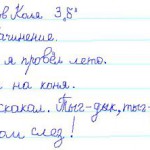 ов Коля 3,5°
ачинение.
я провёл лето.
на коня.
скакал. Тыг-дык, тыг-
ом слез!